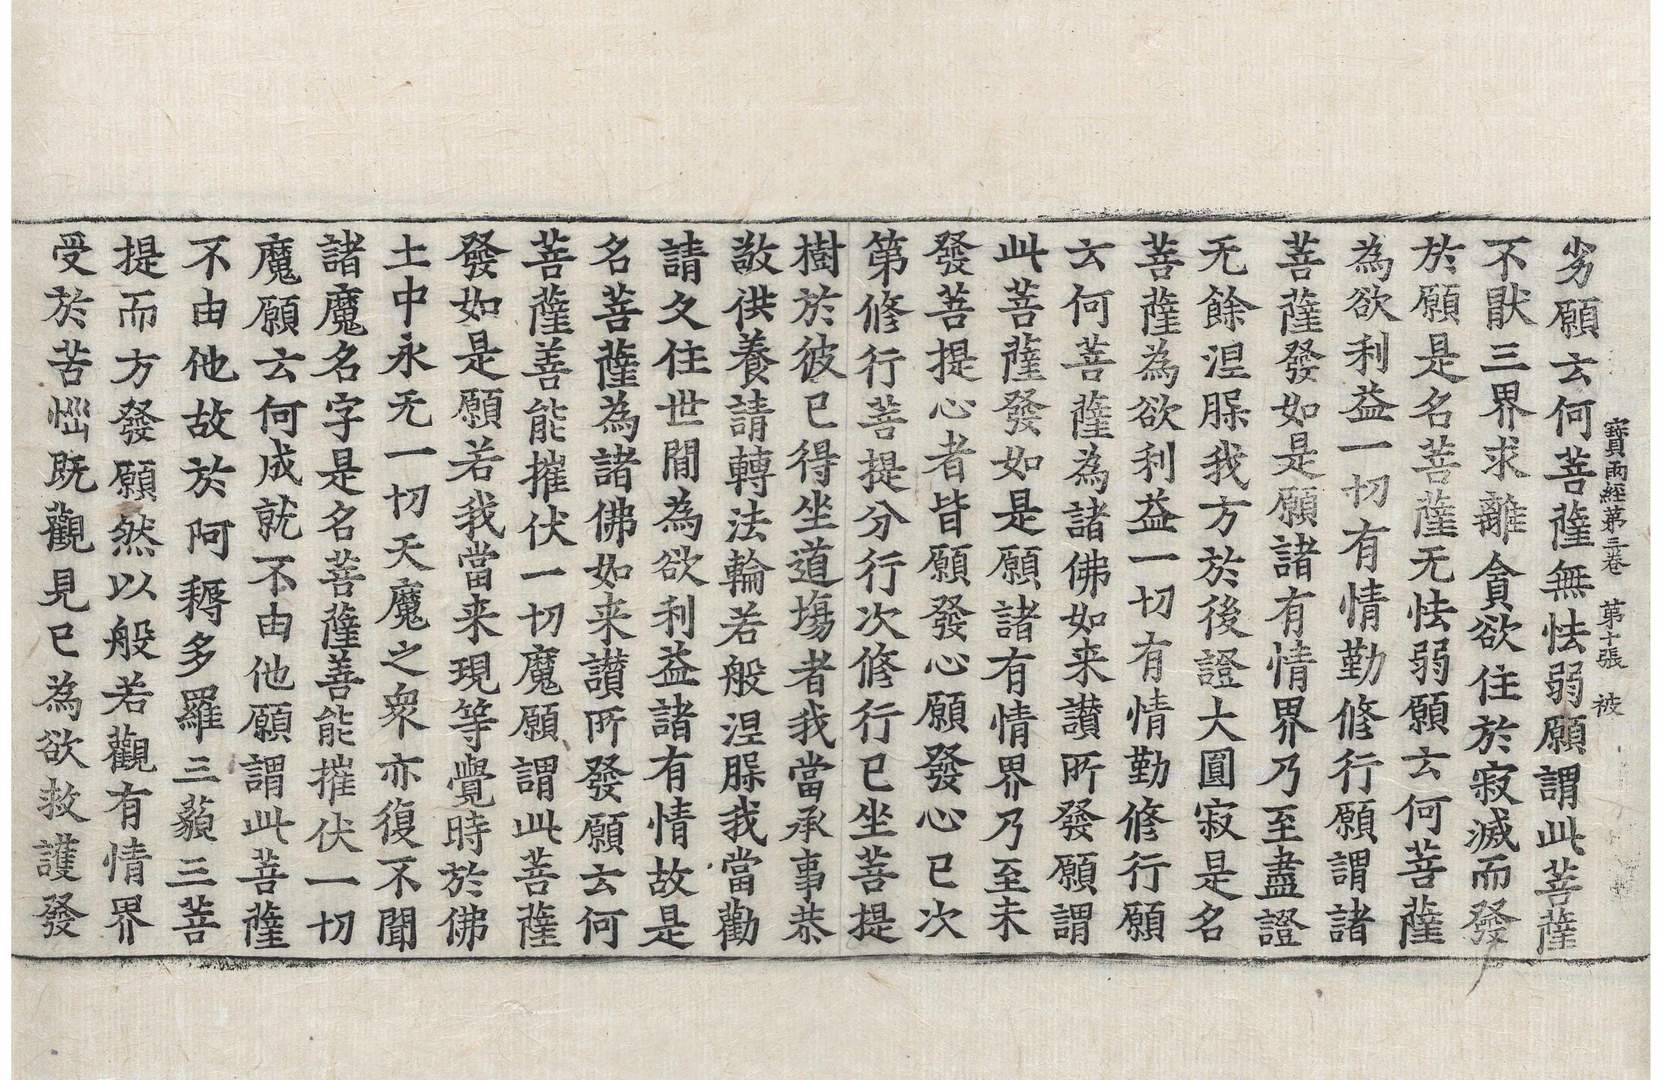 寳雨經第三卷　第十張　被
劣願云何菩薩無怯弱願謂此菩薩
不猒三界求離貪欲住於寂滅而發
於願是名菩薩无怯弱願云何菩薩
為欲利益一切有情勤修行願謂諸
菩薩發如是願諸有情界乃至盡證
无餘涅脲我方於後證大圓寂是名
菩薩為欲利益一切有情勤修行願
云何菩薩為諸佛如来讃所發願謂
此菩薩發如是願諸有情界乃至未
發菩提心者皆願發心願發心已次
第修行菩提分行次修行已坐菩提
樹於彼已得坐道塲者我當承事恭
敬供養請轉法輪若般涅脲我當勸
請久住世間為欲利益諸有情故是
名菩薩為諸佛如来讃所發願云何
菩薩善能摧伏一切魔願謂此菩薩
發如是願若我當来現等覺時於佛
土中永无一切天魔之衆亦復不聞
諸魔名字是名菩薩善能摧伏一切
魔願云何成就不由他願謂此菩薩
不由他故於阿耨多羅三藐三菩
提而方發願然以般若觀有情界
受於苦惱既觀見已為欲救護發